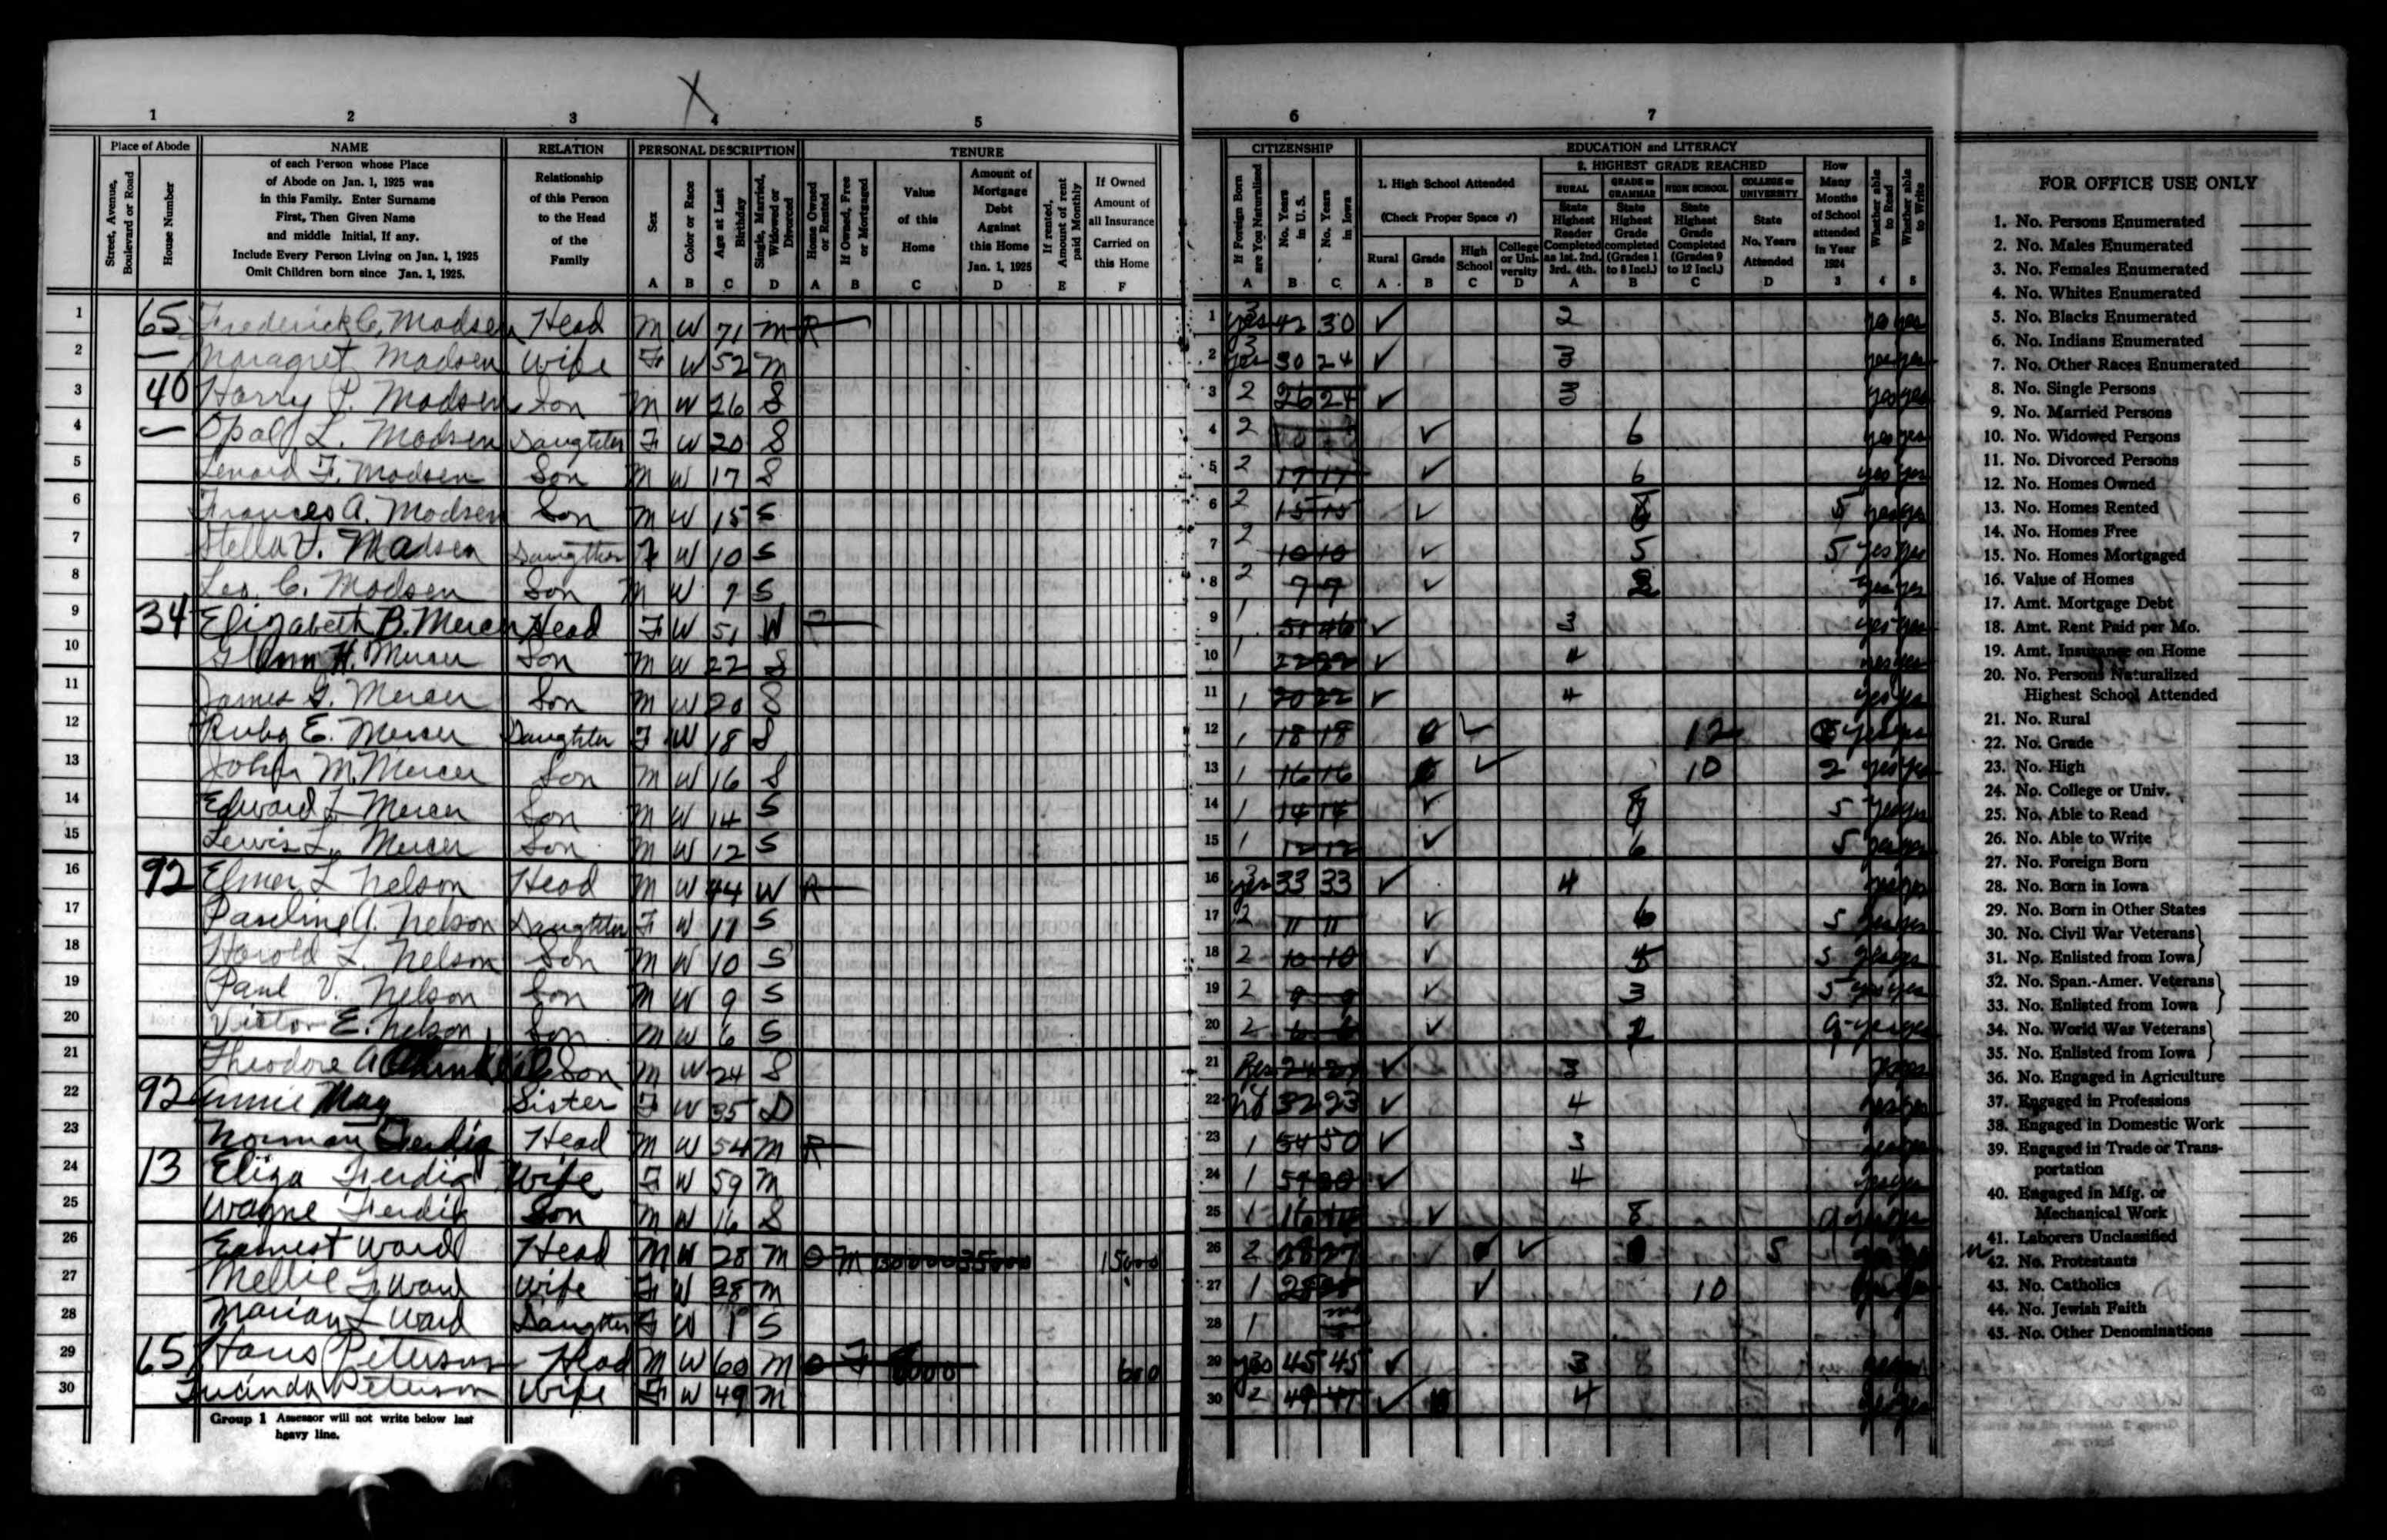 X
1 2 3 4 5
Place of Abode NAME RELATION PERSONAL DESCRIPTION TENURE
Street, Avenue, Boulevard or Road
House Number
of each Person whose Place
of Abode on Jan. 1, 1925 was
in this Family. Enter Surname
First, Then Given Name
and middle Initial, If any.
Include Every Person Living on Jan. 1, 1925
Omit Children born since Jan. 1, 1925.
Relationship
of this Person
to the Head
of the
Family
Sex
Color or Race
Age at Last Birthday
Single, Married, Widowed or Divorced
Home Owned or Rented
If Owned, Free or Mortgaged
Value
of this
Home
Amount of
Mortgage
Debt
Against
this Home
Jan. 1, 1925
If rented, Amount of rent paid Monthly
If Owned
Amount of
all Insurance
Carried on
this Home
A B C D A B C D E F
1 65 Frederick C. Madsen Head M W 71 M R
2 Maragret Madsen Wife F W 52 M
3 40 Harry P. Madsen Son M W 26 S
4 Opal L. Madsen Daughter F W 20 S
5 Lenard F. Madsen Son M W 17 S
6 Frances A. Madsen Son M W 15 S
7 Stella V. Madsen Daugther F W 10 S
8 Leo. C. Madsen Son M W 7 S
9 34 Elizabeth B. Mercer Head F W 51 W R
10 Glenn H. Mercer Son M W 22 S
11 James G. Mercer Son M W 20 S
12 Ruby E. Mercer Daughter F W 18 S
13 John M. Mercer Son M W 16 S
14 Edward L Mercer Son M W 14 S
15 Lewis L. Mercer Son M W 12 S
16 92 Elmer L Nelson Head M W 44 W R
17 Pauline A. Nelson Daughter F W 11 S
18 Harold L. Nelson Son M W 10 S
19 Paul V. Nelson Son M W 9 S
20 Victor E. Nelson Son M W 6 S
21 Theodore A Son M W 24 S
22 92 Annie May Sister F W 35 D
23 Norman Ferdig Head M W 54 M R
24 13 Eliza Ferdig Wife F W 59 M
25 Wayne Ferdig Son M W 16 S
26 Earnest Ward Head M W 28 M O M
27 Mellie F. Ward Wife F W 28 M
28 Marian L Ward Daughter F W 1 S
29 65 Hans Peterson Head M W 60 M O F 600
30 Lucinda Peterson Wife F W 49 M
Group 1 Assessor will not write below last
heavy line.
6 7
CITIZENSHIP EDUCATION and LITERACY
If Foreign Born are You Naturalized
No. Years in U. S.
No. Years in Iowa
1. High School Attended
(Check Proper Space ✓)
Rural Grade High School College or University
2. HIGHEST GRADE REACHED
RURAL
State Highest Reader Completed as 1st. 2nd. 3rd. 4th.
GRADE or GRAMMAR
State Highest Grade completed (Grades 1 to 8 Incl.)
HIGH SCHOOL
State Highest Grade Completed (Grades 9 to 12 Incl.)
COLLEGE or UNIVERSITY
State No. Years Attended
How Many Months of School attended in Year 1924
Whether able to Read
Whether able to Write
A B C A B C D A B C D 3 4 5
1 yes 3 42 30 ✓ 2 yes yes
2 yes 3 30 24 ✓ 3 yes yes
3 2 26 24 ✓ 3 yes yes
4 2 ✓ 6 yes yes
5 2 17 17 ✓ 6 yes yes
6 2 15 15 ✓ 5 yes yes
7 2 10 10 ✓ 5 5 yes yes
8 2 7 7 ✓ 2 yes yes
9 1 51 46 ✓ 3 yes yes
10 1 22 22 ✓ 4 yes yes
11 1 20 22 ✓ 4 yes yes
12 1 18 18 ✓ 12 yes yes
13 1 16 16 ✓ 10 2 yes yes
14 1 14 14 ✓ 8 5 yes yes
15 1 12 12 ✓ 6 5 yes yes
16 yes 3 33 33 ✓ 4 yes yes
17 2 11 11 ✓ 6 5 yes yes
18 2 10 10 ✓ 5 yes yes
19 2 9 9 ✓ 3 5 yes yes
20 2 6 6 ✓ 9 yes yes
21 24 ✓ 3 yes yes
22 32 23 ✓ 4 yes yes
23 1 54 50 ✓ 3 yes yes
24 1 59 ✓ 4 yes yes
25 1 16 ✓ 8 9 yes yes
26 2 28 27 ✓ 5
27 1 28 ✓ 10
28 1
29 yes 3 45 45 ✓ 3 yes yes
30 2 49 47 ✓ 4 yes yes
FOR OFFICE USE ONLY
1. No. Persons Enumerated
2. No. Males Enumerated
3. No. Females Enumerated
4. No. Whites Enumerated
5. No. Blacks Enumerated
6. No. Indians Enumerated
7. No. Other Races Enumerated
8. No. Single Persons
9. No. Married Persons
10. No. Widowed Persons
11. No. Divorced Persons
12. No. Homes Owned
13. No. Homes Rented
14. No. Homes Free
15. No. Homes Mortgaged
16. Value of Homes
17. Amt. Mortgage Debt
18. Amt. Rent Paid per Mo.
19. Amt. Insurance on Home
20. No. Persons Naturalized
Highest School Attended
21. No. Rural
22. No. Grade
23. No. High
24. No. College or Univ.
25. No. Able to Read
26. No. Able to Write
27. No. Foreign Born
28. No. Born in Iowa
29. No. Born in Other States
30. No. Civil War Veterans
31. No. Enlisted from Iowa
32. No. Span.-Amer. Veterans
33. No. Enlisted from Iowa
34. No. World War Veterans
35. No. Enlisted from Iowa
36. No. Engaged in Agriculture
37. Engaged in Professions
38. Engaged in Domestic Work
39. Engaged in Trade or Trans-
portation
40. Engaged in Mfg. or
Mechanical Work
41. Laborers Unclassified
42. No. Protestants
43. No. Catholics
44. No. Jewish Faith
45. No. Other Denominations